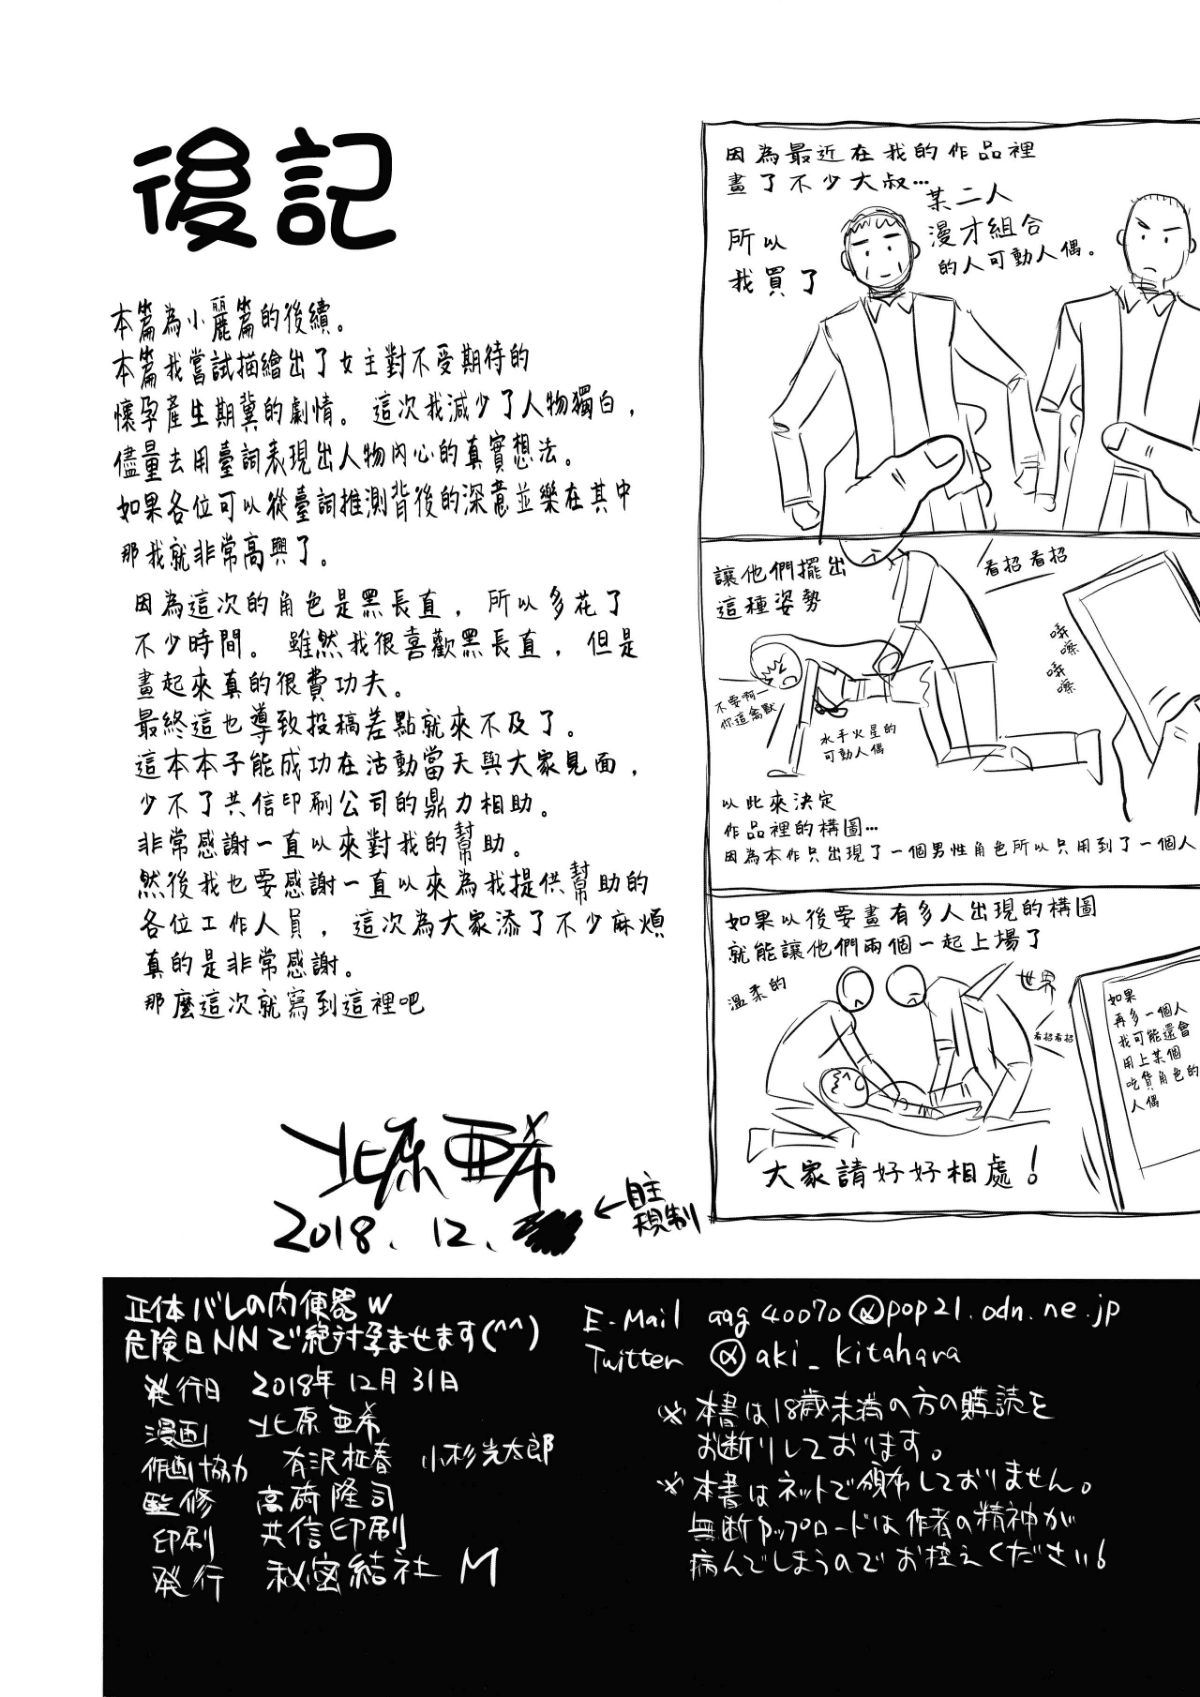 後記
本篇為小麗篇的後續。
本篇我嘗試描繪出了女主對不受期待的
懷孕產生期冀的劇情。這次我減少了人物獨白，
儘量去用臺詞表現出人物內心的真實想法。
如果各位可以從臺詞推測背後的深意並樂在其中
那我就非常高興了。
因為這次的角色是黑長直，所以多花了
不少時間。雖然我很喜歡黑長直，但是
畫起來真的很費功夫。
最終這也導致投稿差點就來不及了。
這本本子能成功在活動當天與大家見面，
少不了共信印刷公司的鼎力相助。
非常感謝一直以來對我的幫助。
然後我也要感謝一直以來為我提供幫助的
各位工作人員，這次為大家添了不少麻煩
真的是非常感謝。
那麼這次就寫到這裡吧
北原亜希
2018.12.
←自主
規制
因為最近在我的作品裡
畫了不少大叔…
所以
我買了
某二人
漫才組合
的人可動人偶。
讓他們擺出
這種姿勢
看招看招
嚓
嚓
不要啊一
你這禽獸
水手火星的
可動人偶
以此來決定
作品裡的構圖…
因為本作只出現了一個男性角色所以只用到了一個人
如果以後要畫有多人出現的構圖
就能讓他們兩個一起上場了
溫柔的
世界
看招看招
如果
再多一個人
我可能還會
用上某個
吃貨角色的
人偶
大家請好好相處！
正体バレの肉便器w
危険日NNで絶対孕ませます(^^)
発行日 2018年12月31日
漫画 北原亜希
作画協力 有沢柾春 小杉光太郎
監修 高崎隆司
印刷 共信印刷
発行 秘密結社M
E-Mail aag40070@pop21.odn.ne.jp
Twitter @aki_kitahara
※本書は18歳未満の方の購読を
お断りしております。
※本書はネットで頒布しておりません。
無断アップロードは作者の精神が
病んでしまうのでお控えください！